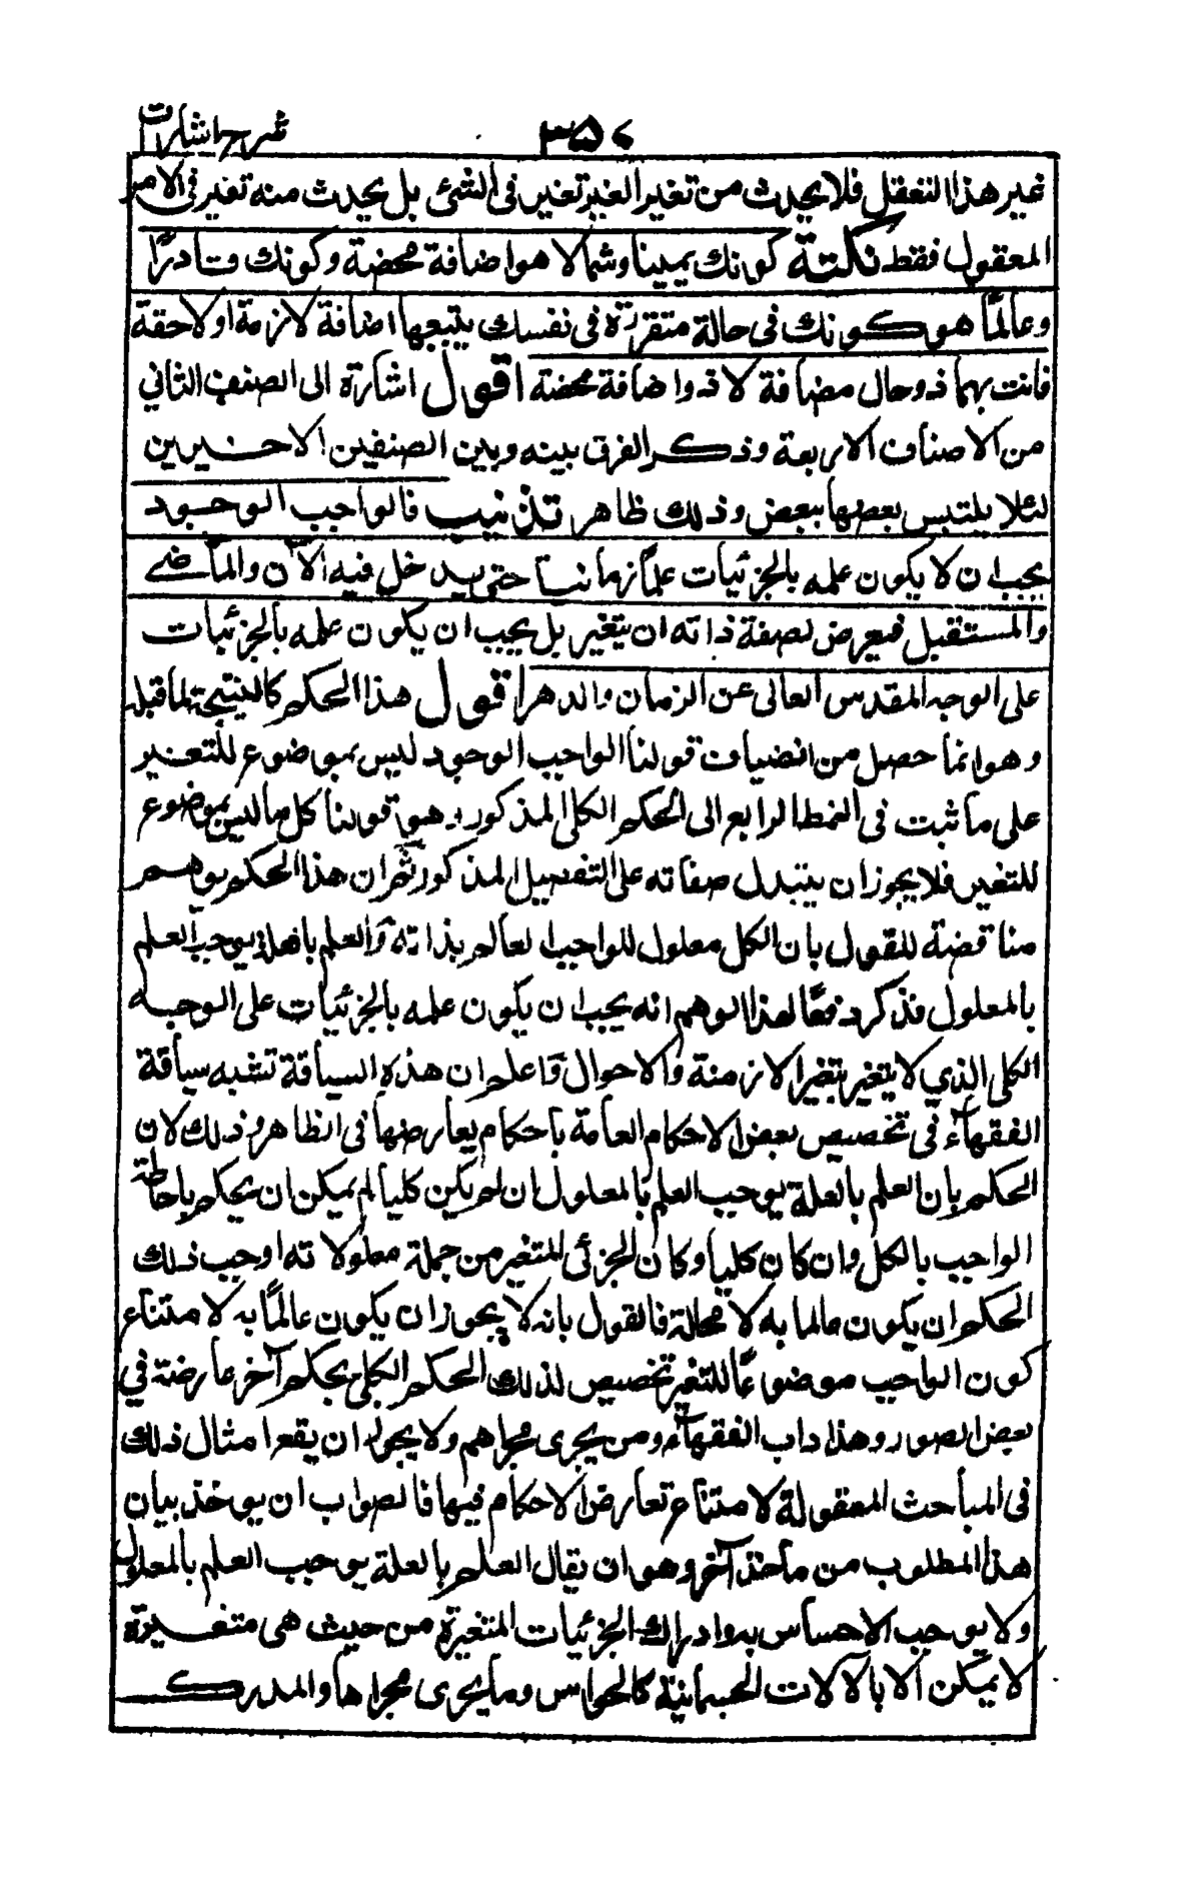 شرح اشارات
٣٥٧
غير هذا التعقل فلا يحدث من تغير الغير تغير في الشئ بل يحدث منه تغير في الامر
المعقول فقط نكتة كونك يمينا وشمالا هو اضافة محضة وكونك قادرًا
وعالمًا هو كونك في حالة متقررة في نفسك يتبعها اضافة لازمة اولاحقة
فانت بهما ذو حال مضافة لا ذو اضافة محضة اقول اشارة الى الصنف الثاني
من الاصناف الاربعة وذكر الفرق بينه وبين الصنفين الاخيرين
لئلا يلتبس بعضها ببعض وذلك ظاهر تذنيب فالواجب الوجود
يجب ان لا يكون علمه بالجزئيات علمًا زمانيا حتى يدخل فيه الآن والماضي
والمستقبل فيعرض لصفة ذاته ان يتغير بل يجب ان يكون علمه بالجزئيات
على الوجه المقدس العالى عن الزمان والدهر اقول هذا الحكم كالنتيجة لما قبله
وهو انما حصل من انضياف قولنا الواجب الوجود ليس بموضوع للتغير
على ما ثبت في النمط الرابع الى الحكم الكلى المذكور وهو قولنا كل ما ليس بموضوع
للتغير فلا يجوز ان يتبدل صفاته على التفصيل المذكور ثم ان هذا الحكم يوهم
مناقضة للقول بان الكل معلول للواجب العالم بذاته والعلم بالعلة يوجب العلم
بالمعلول فذكر دفعًا لهذا الوهم انه يجب ان يكون علمه بالجزئيات على الوجه
الكلى الذي لا يتغير بتغير الازمنة والاحوال واعلم ان هذه السياقة تشبه سياقة
الفقهاء في تخصيص بعض الاحكام العامة باحكام يعارضها في الظاهر وذلك لان
الحكم بان العلم بالعلة يوجب العلم بالمعلول ان لم يكن كليا لم يمكن ان يحكم باحاطة
الواجب بالكل وان كان كليا وكان الجزئى المتغير من جملة معلولاته اوجب ذلك
الحكم ان يكون عالما به لا محالة فالقول بانه لا يجوز ان يكون عالمًا به لامتناع
كون الواجب موضوعًا للتغير تخصيص لذلك الحكم الكلى بحكم آخر عارضه في
بعض الصور وهذا داب الفقهاء ومن يجرى مجراهم ولا يجوز ان يقع امثال ذلك
في المباحث المعقولة لامتناع تعارض الاحكام فيها فالصواب ان يوخذ بيان
هذا المطلوب من ماخذ آخر وهو ان يقال العلم بالعلة يوجب العلم بالمعلول
ولا يوجب الاحساس به وادراك الجزئيات المتغيرة من حيث هى متغيرة
لا يمكن الا بالآلات الجسمانية كالحواس وما يجرى مجراها والمدرك